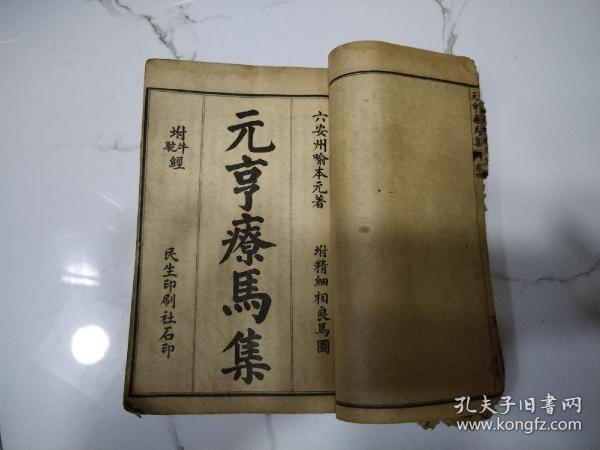 六安州喻本元著　坿精細相良馬圖
元亨療馬集
坿牛駝經　民生印刷社石印
元亨療馬集
孔夫子旧书网
www.kongfz.com